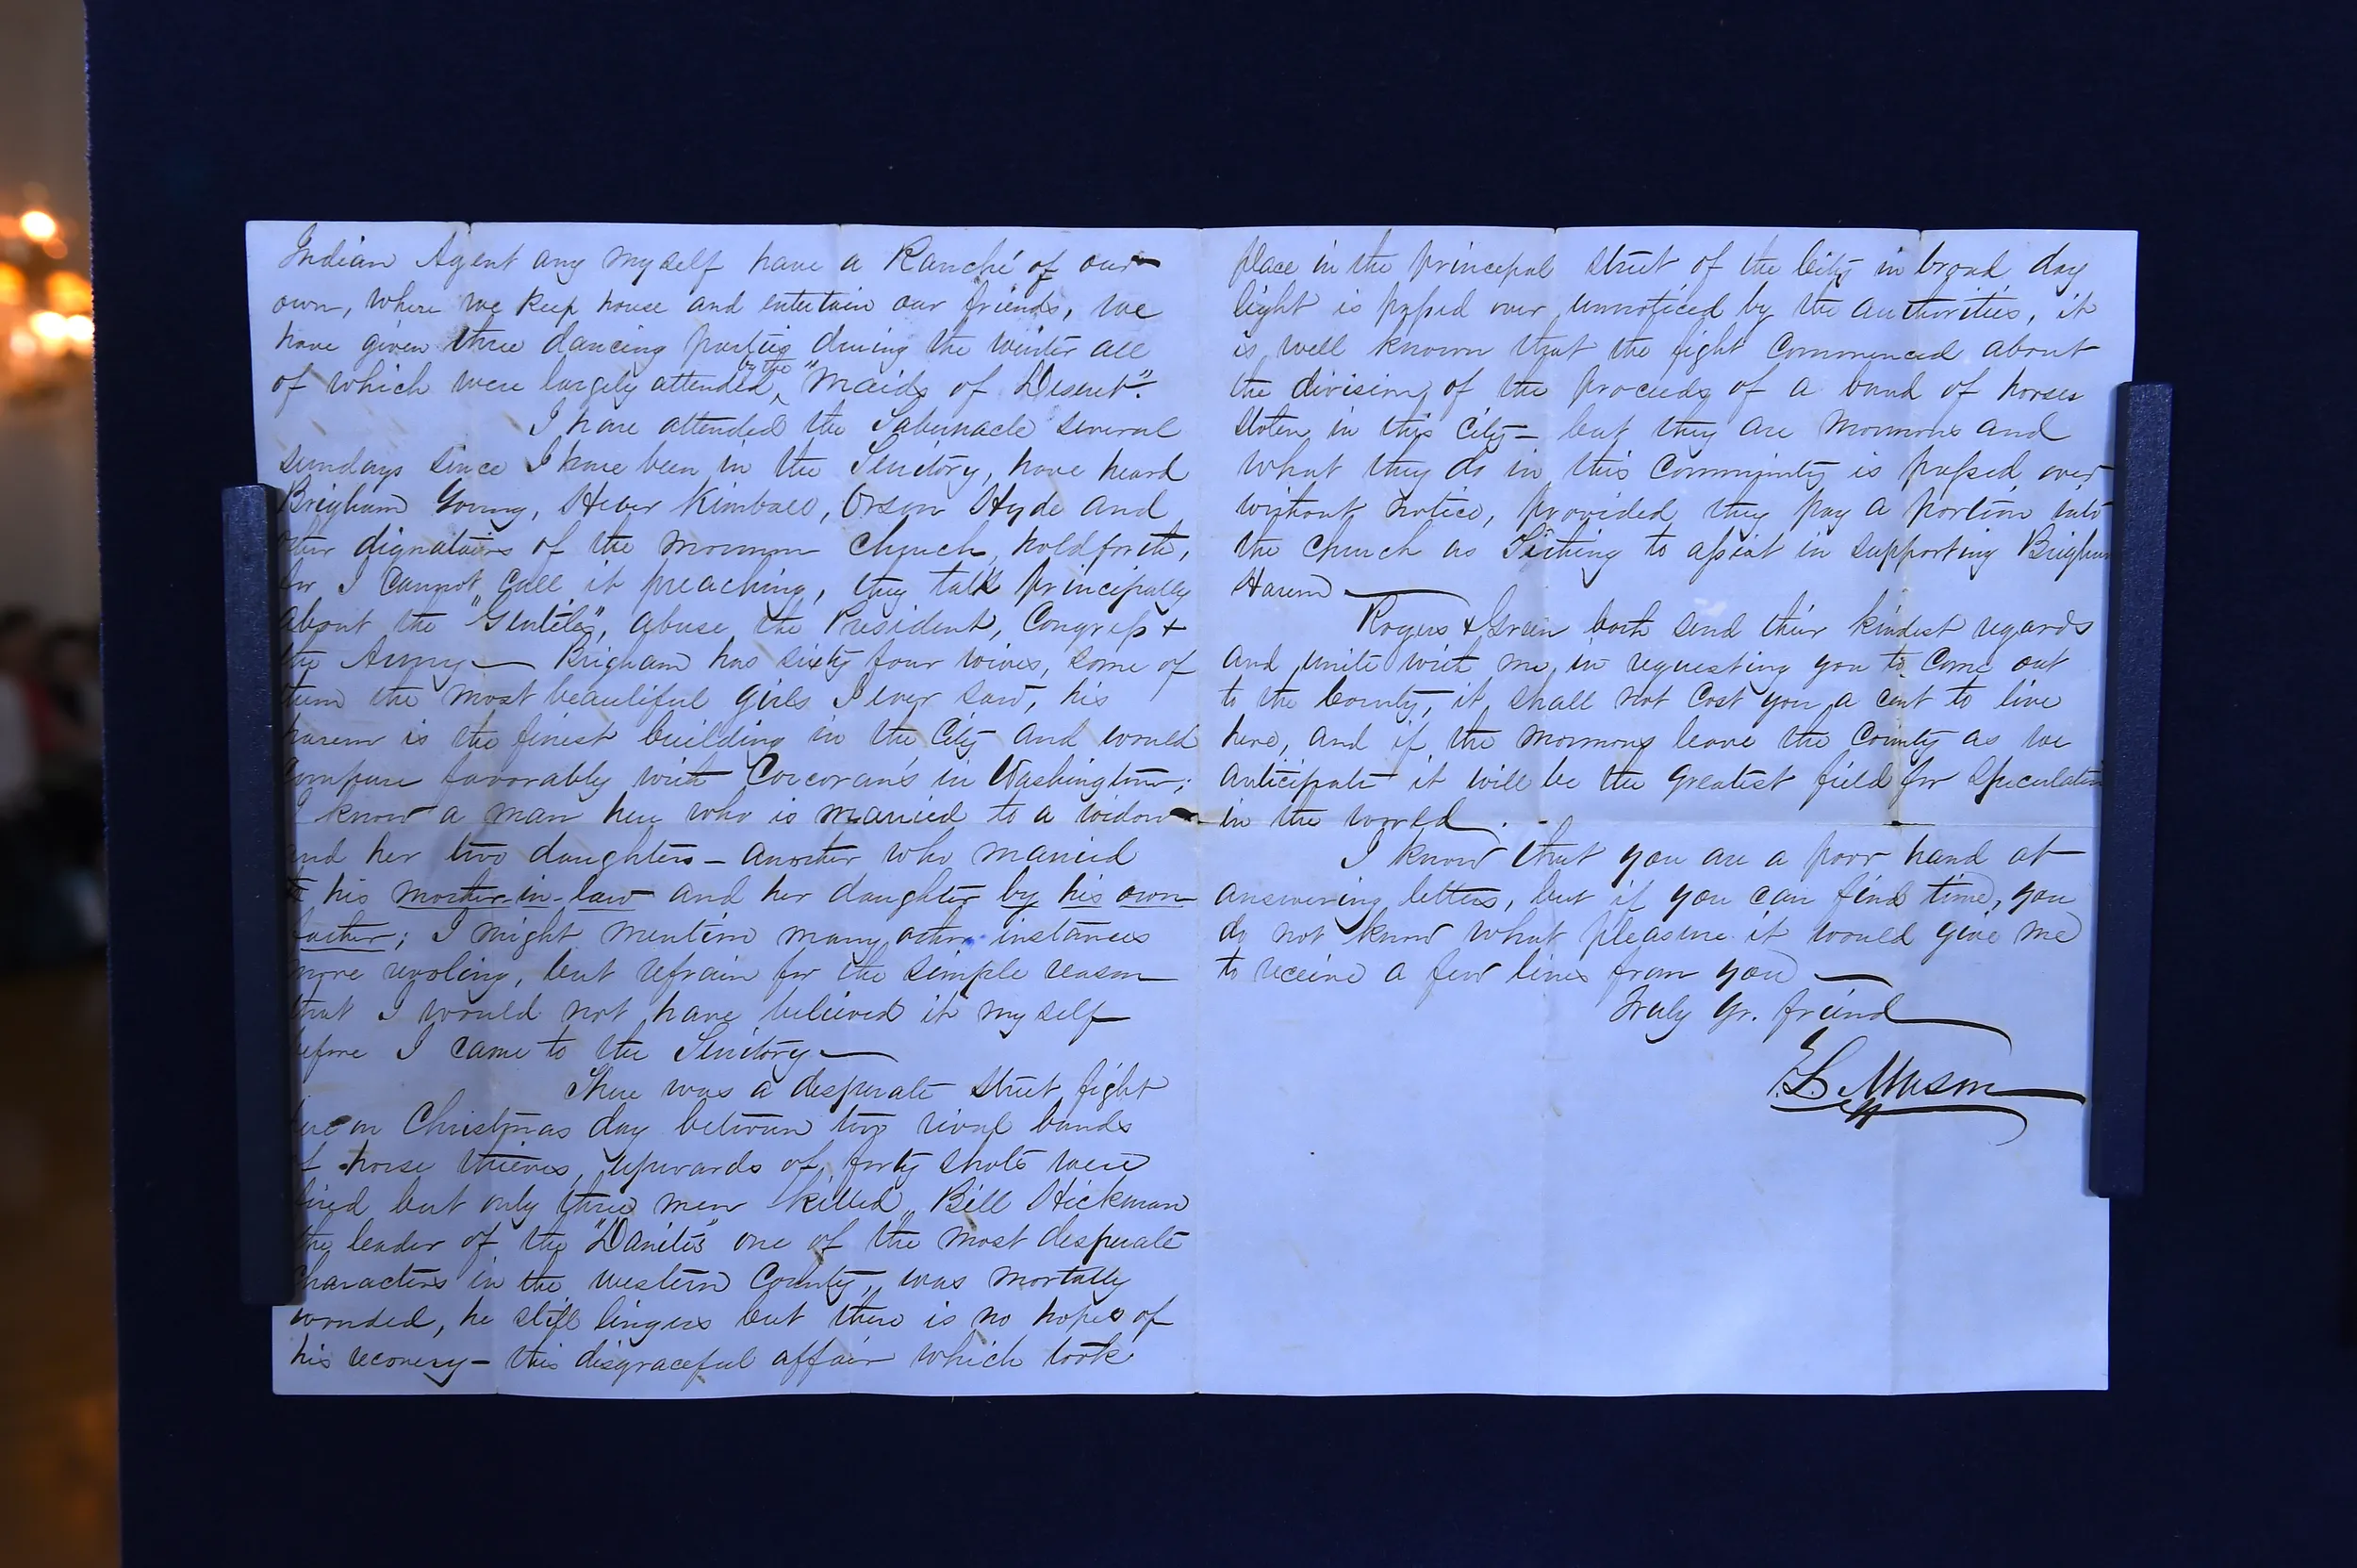 Indian Agent any myself have a Ranché of our
own, where we keep house and entertain our friends, we
have given three dancing parties during the winter all
of which were largely attended, by the "Maids of Deseret".
I have attended the Tabernacle several
sundays since I have been in the Teritory, have heard
Brigham Young, Heber Kimball, Orson Hyde and
other dignataries of the mormon Church, hold forth,
for I cannot call it preaching, they talk principally
about the "Gentiles", abuse the President, Congress &
the Army — Brigham has sixty four wives, some of
them the most beautiful girls I ever saw, his
harem is the finest building in the City and would
compare favorably with Corcoran's in Washington;
I know a man here who is married to a widow
and her two daughters — another who married
his mother-in-law and her daughter by his own
father; I might mention many other instances
more revoling, but refrain for the simple reason
that I would not have believed it myself
before I came to the Teritory —
There was a desperate street fight
here on Christmas day between two rival bands
of horse thieves, upwards of forty shots were
fired but only three men killed, Bill Hickman
the leader of the "Danites" one of the most desperate
characters in the western County, was mortally
wonded, he still lingers but there is no hopes of
his recovery — this disgraceful affair which took
place in the principal street of the City in broad day
light is passed over unnoticed by the authorities, it
is well known that the fight commenced about
the division of the proceeds of a band of horses
stolen in this City — but they are Mormons and
what they do in this Community is passed over
without notice, provided they pay a portion into
the Church as Tithing to assist in supporting Brigham
Harem —
Rogers & Green both send their kindest regards
and unite with me, in requesting you to come out
to the County, it shall not cost you a cent to live
here, and if the mormons leave the County as we
anticipate it will be the greatest field for speculation
in the world.
I know that you are a poor hand at
answering letters, but if you can find time, you
do not know what pleasure it would give me
to receive a few lines from you —
Truly yr. friend
E. L. Mason